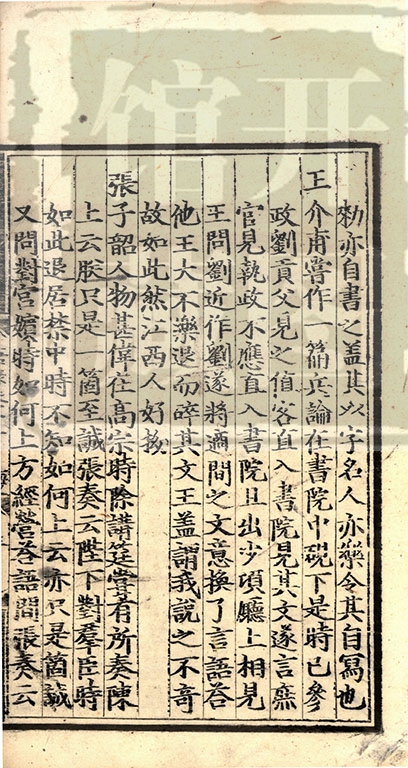 勑亦自書之盖其以字名人亦樂令其自寫也
王介甫嘗作一篇兵論在書院中硯下是時已參
政劉貢父見之值客直入書院見其文遂言庶
官見執政不應直入書院且出少頃廳上相見
王問劉近作劉遂將適間之文意換了言語荅
他王大不樂退而碎其文王盖謂我說之不奇
故如此然江西人好拗
張子韶人物甚偉在高宗時除講筵嘗有所奏陳
上云朕只是一箇至誠張奏云陛下對羣臣時
如此退居禁中時不知如何上云亦只是箇誠
又問對宮嬪時如何上方經營荅語間張奏云